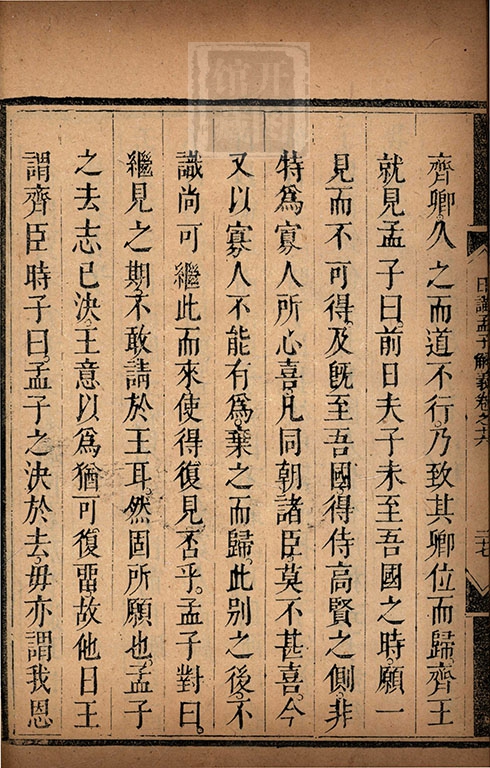 齊卿。久之而道不行。乃致其卿位而歸。齊王
就見孟子曰。前日夫子未至吾國之時。願一
見而不可得。及旣至吾國。得侍高賢之側。非
特爲寡人所心喜。凡同朝諸臣。莫不甚喜。今
又以寡人不能有爲。棄之而歸。此别之後。不
識尚可繼此而來。使得復見否乎。孟子對曰。
繼見之期。不敢請於王耳。然固所願也。孟子
之去志已決。王意以爲猶可復畱。故他日王
謂齊臣時子曰。孟子之決於去。毋亦謂我恩
日講孟子解義卷之六